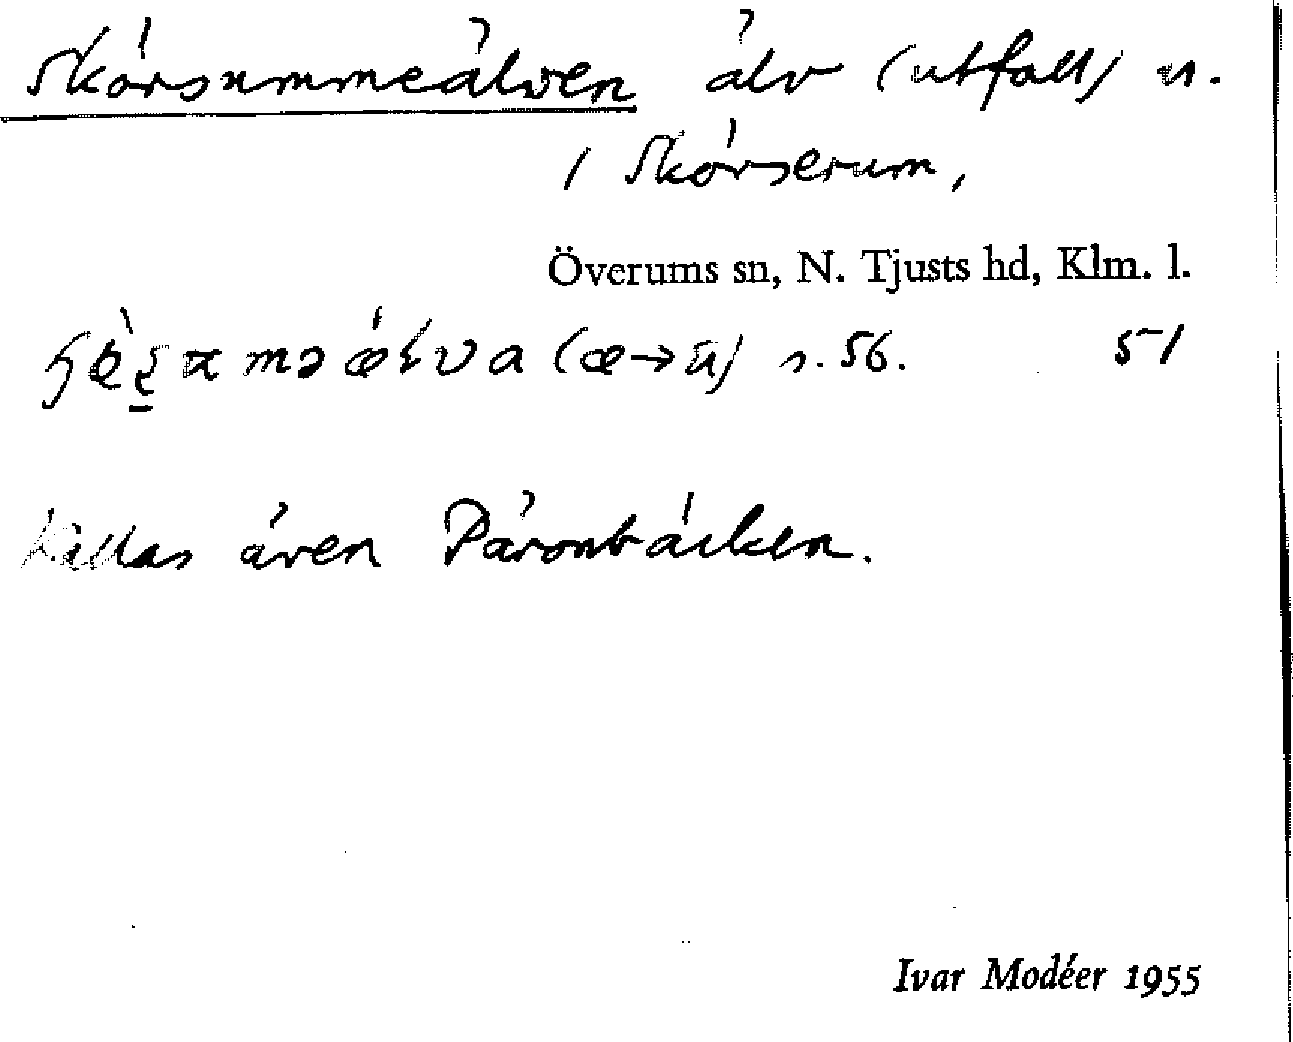 Skörsummeälven älv (utfall) n.
i Skörserum,
Överums sn, N. Tjusts hd, Klm. l.
s. 56. 51
Kallas även Päronbäcken.
Ivar Modéer 1955